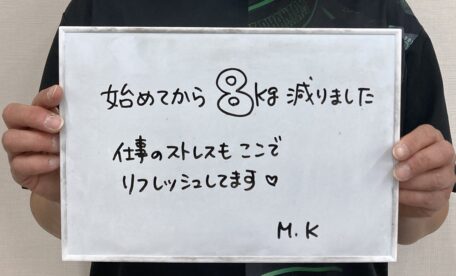 始めてから 8kg 減りました
仕事のストレスも ここで
リフレッシュしてます♡
M.K